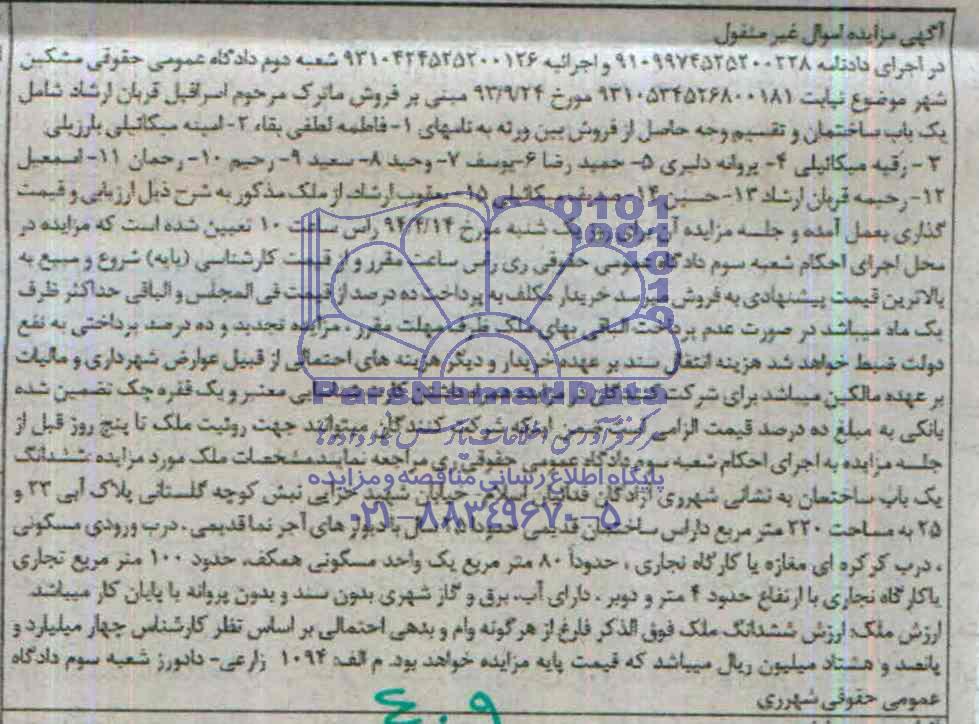 آگهی مزایده اموال غیر منقول
در اجرای دادنامه ۹۱۰۹۹۷۴۵۲۵۲۰۰۲۲۸ و اجرائیه ۹۳۱۰۴۲۴۵۲۵۲۰۰۱۲۶ شعبه دوم دادگاه عمومی حقوقی مشکین
شهر موضوع نیابت ۹۳۱۰۵۳۴۵۲۶۸۰۰۱۸۱ مورخ ۹۳/۹/۲۴ مبنی بر فروش ماترک مرحوم اسرافیل قربان ارشاد شامل
یک باب ساختمان و تقسیم وجه حاصل از فروش بین ورثه به نامهای ۱- فاطمه لطفی بقاء ۲- امینه میکائیلی بارزیلی
۳ - رقیه میکائیلی ۴- پروانه دلیری ۵- حمید رضا ۶-یوسف ۷- وحید ۸- سعید ۹- رحیم ۱۰- رحمان ۱۱- اسمعیل
۱۲- رحیمه قربان ارشاد ۱۳- حسین ۱۴- میکائیلی ۱۵- یعقوب ارشاد، از ملک مذکور به شرح ذیل ارزیابی و قیمت
گذاری بعمل آمده و جلسه مزایده آن برای روز یک شنبه مورخ ۹۴/۴/۱۴ راس ساعت ۱۰ تعیین شده است که مزایده در
محل اجرای احکام شعبه سوم دادگاه عمومی حقوقی ری راس ساعت مقرر و از قیمت کارشناسی (پایه) شروع و سپس به
بالاترین قیمت پیشنهادی به فروش میرسد خریدار مکلف به پرداخت ده درصد از قیمت فی المجلس و الباقی حداکثر ظرف
یک ماه میباشد در صورت عدم پرداخت الباقی بهای ملک ظرف مهلت مقرر ، مزایده تجدید و ده درصد پرداختی به نفع
دولت ضبط خواهد شد هزینه انتقال سند بر عهده خریدار و دیگر هزینه های احتمالی از قبیل عوارض شهرداری و مالیات
بر عهده مالکین میباشد برای شرکت کنندگان در مزایده همراه داشتن کارت شناسایی معتبر و یک فقره چک تضمین شده
بانکی به مبلغ ده درصد قیمت الزامی است ضمن اینکه شرکت کنندگان میتوانند جهت رویت ملک تا پنج روز قبل از
جلسه مزایده به اجرای احکام شعبه سوم دادگاه عمومی حقوقی ری مراجعه نمایند مشخصات ملک مورد مزایده :ششدانگ
یک باب ساختمان به نشانی شهرری آزادگان فدائیان اسلام خیابان شهید خزایی نبش کوچه گلستانی پلاک آبی ۲۳ و
۲۵ به مساحت ۲۲۰ متر مربع دارای ساختمان قدیمی حدود سال با دیوار های آجر نما قدیمی ، درب ورودی مسکونی
، درب کرکره ای مغازه یا کارگاه نجاری ، حدوداً ۸۰ متر مربع یک واحد مسکونی همکف، حدود ۱۰۰ متر مربع تجاری
یا کارگاه نجاری با ارتفاع حدود ۴ متر و دوبر ، دارای آب، برق و گاز شهری بدون سند و بدون پروانه یا پایان کار میباشد.
ارزش ملک: ارزش ششدانگ ملک فوق الذکر فارغ از هر گونه وام و بدهی احتمالی بر اساس نظر کارشناس چهار میلیارد و
پانصد و هشتاد میلیون ریال میباشد که قیمت پایه مزایده خواهد بود. م الف: ۱۰۹۴ زارعی- دادورز شعبه سوم دادگاه
عمومی حقوقی شهرری
ParsNamadData
مرکز فرآوری اطلاعات پارس نماد داده ها
پایگاه اطلاع رسانی مناقصه و مزایده
۰۲۱-۸۸۳۴۹۶۷۰-۵